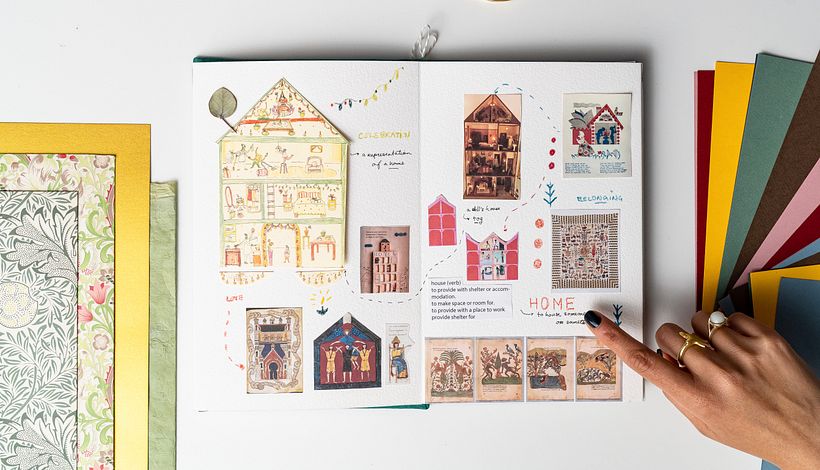 CELEBRATION
→ a representation
of a home
LOVE
a doll's house
↳ toy
BELONGING
house (verb)
to provide with shelter or accom-
modation.
to make space or room for.
to provide with a place to work
provide shelter for
HOME
to house someone